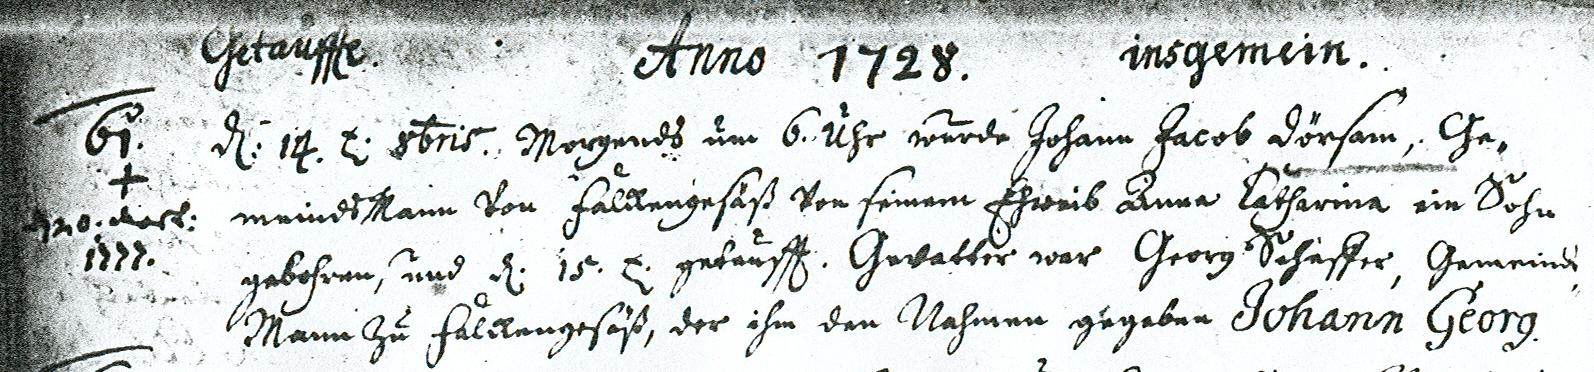 Getauffte. Anno 1728. insgemein.
61. d. 14. t. 8bris. Morgends um 6. Uhr wurde Johann Jacob Dörsam, Ge-
+ meinds Mann von Fallengesäß von seinem Eheweib Anna Catharina ein Sohn
1777. gebohren, und d. 15. t. getaufft. Gevatter war Georg Schäffer, Gemeinds
Mann zu Fallengesäß, der ihm den Nahmen gegeben Johann Georg.